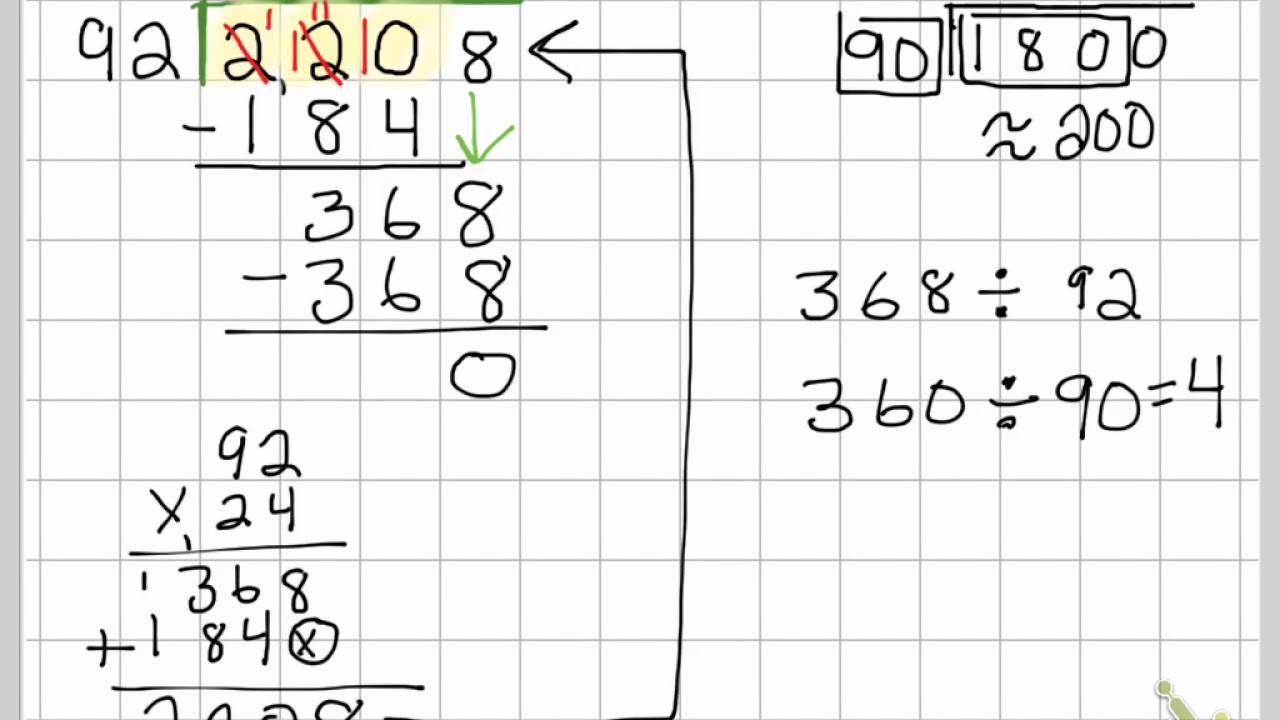 92 2,208
- 184
368
- 368
0
92
x 24
1 368
+ 184x
2208
90 18 0 0
≈ 200
368 ÷ 92
360 ÷ 90 = 4